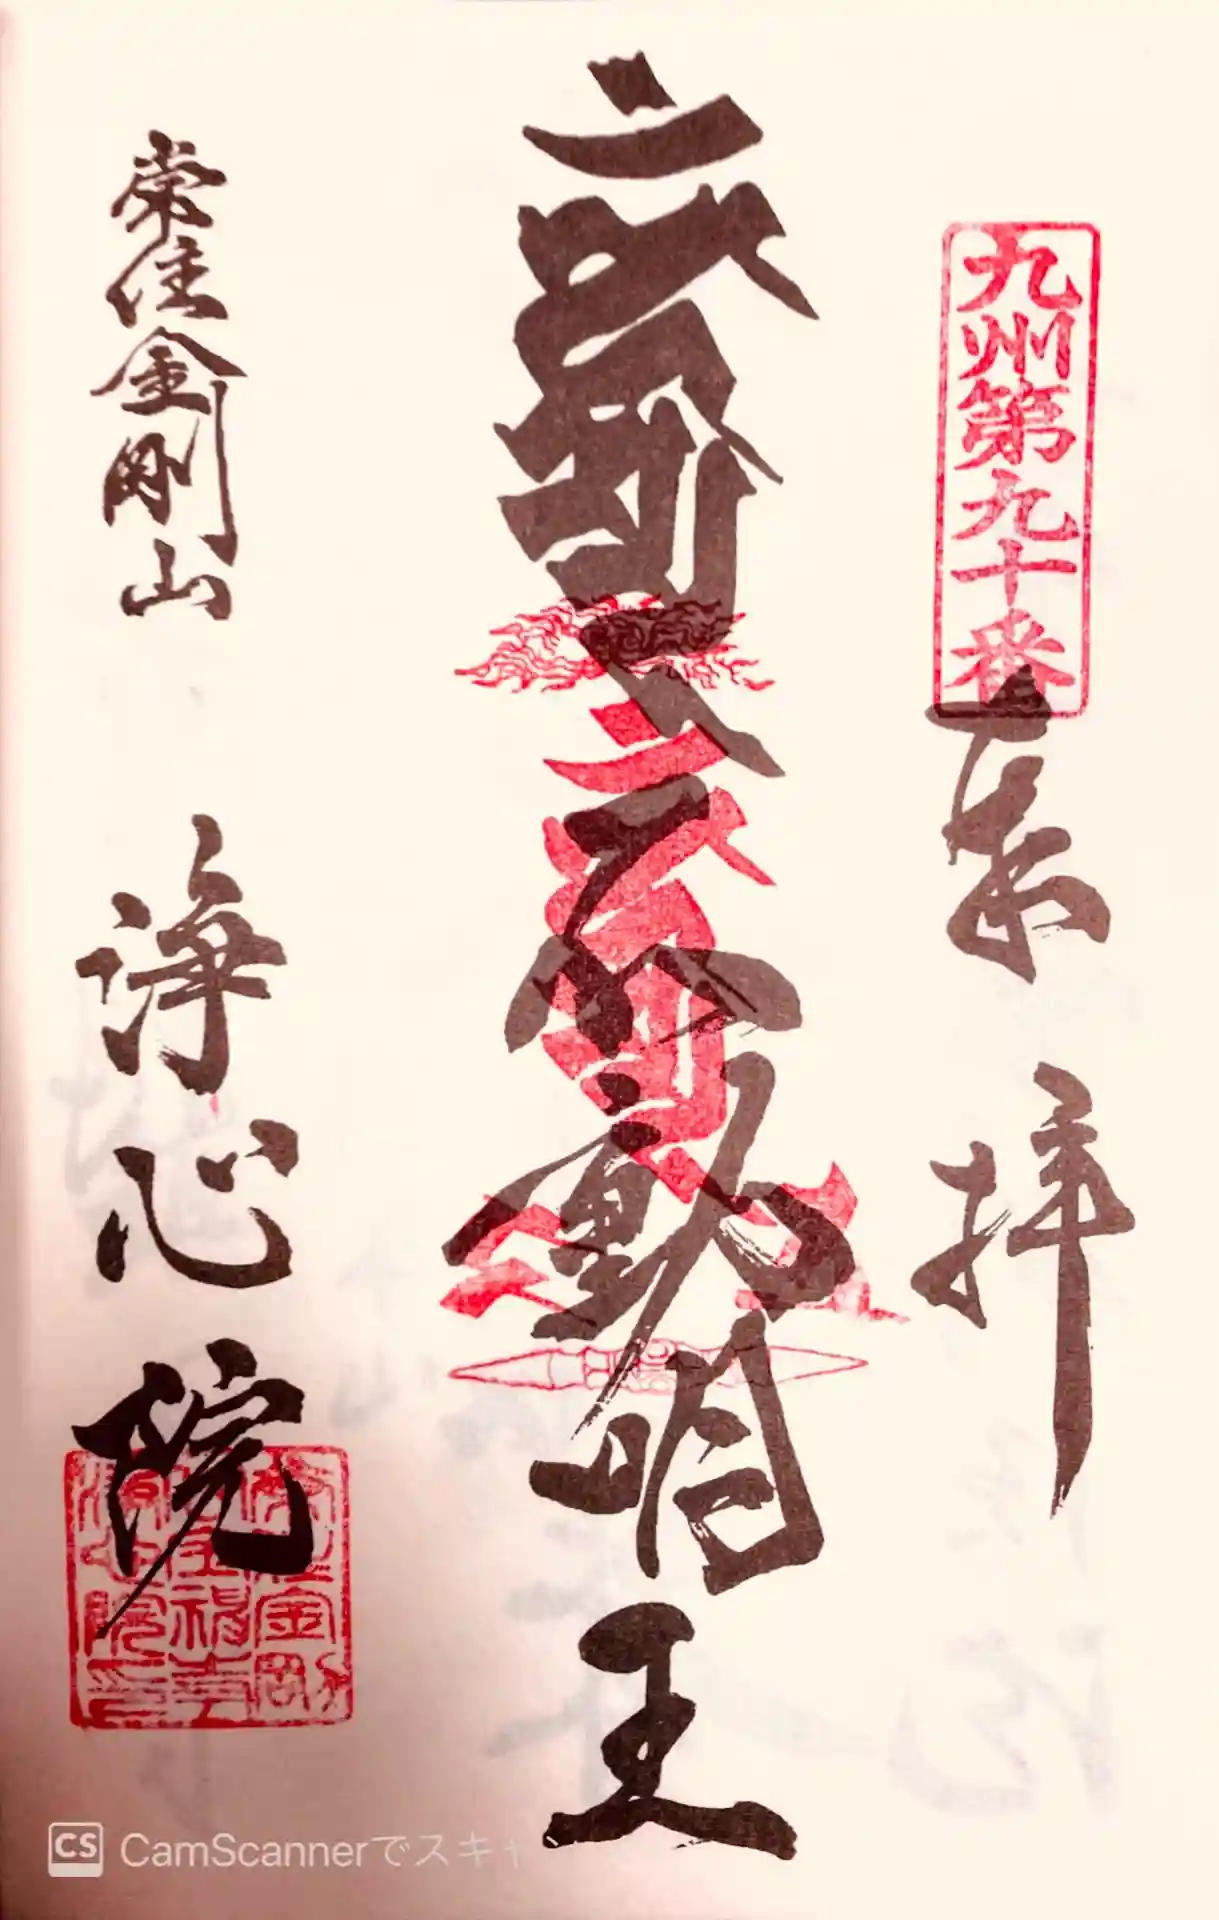 九州第九十番
奉拝
不動明王
常住金剛山
浄心院
CamScannerでスキャ